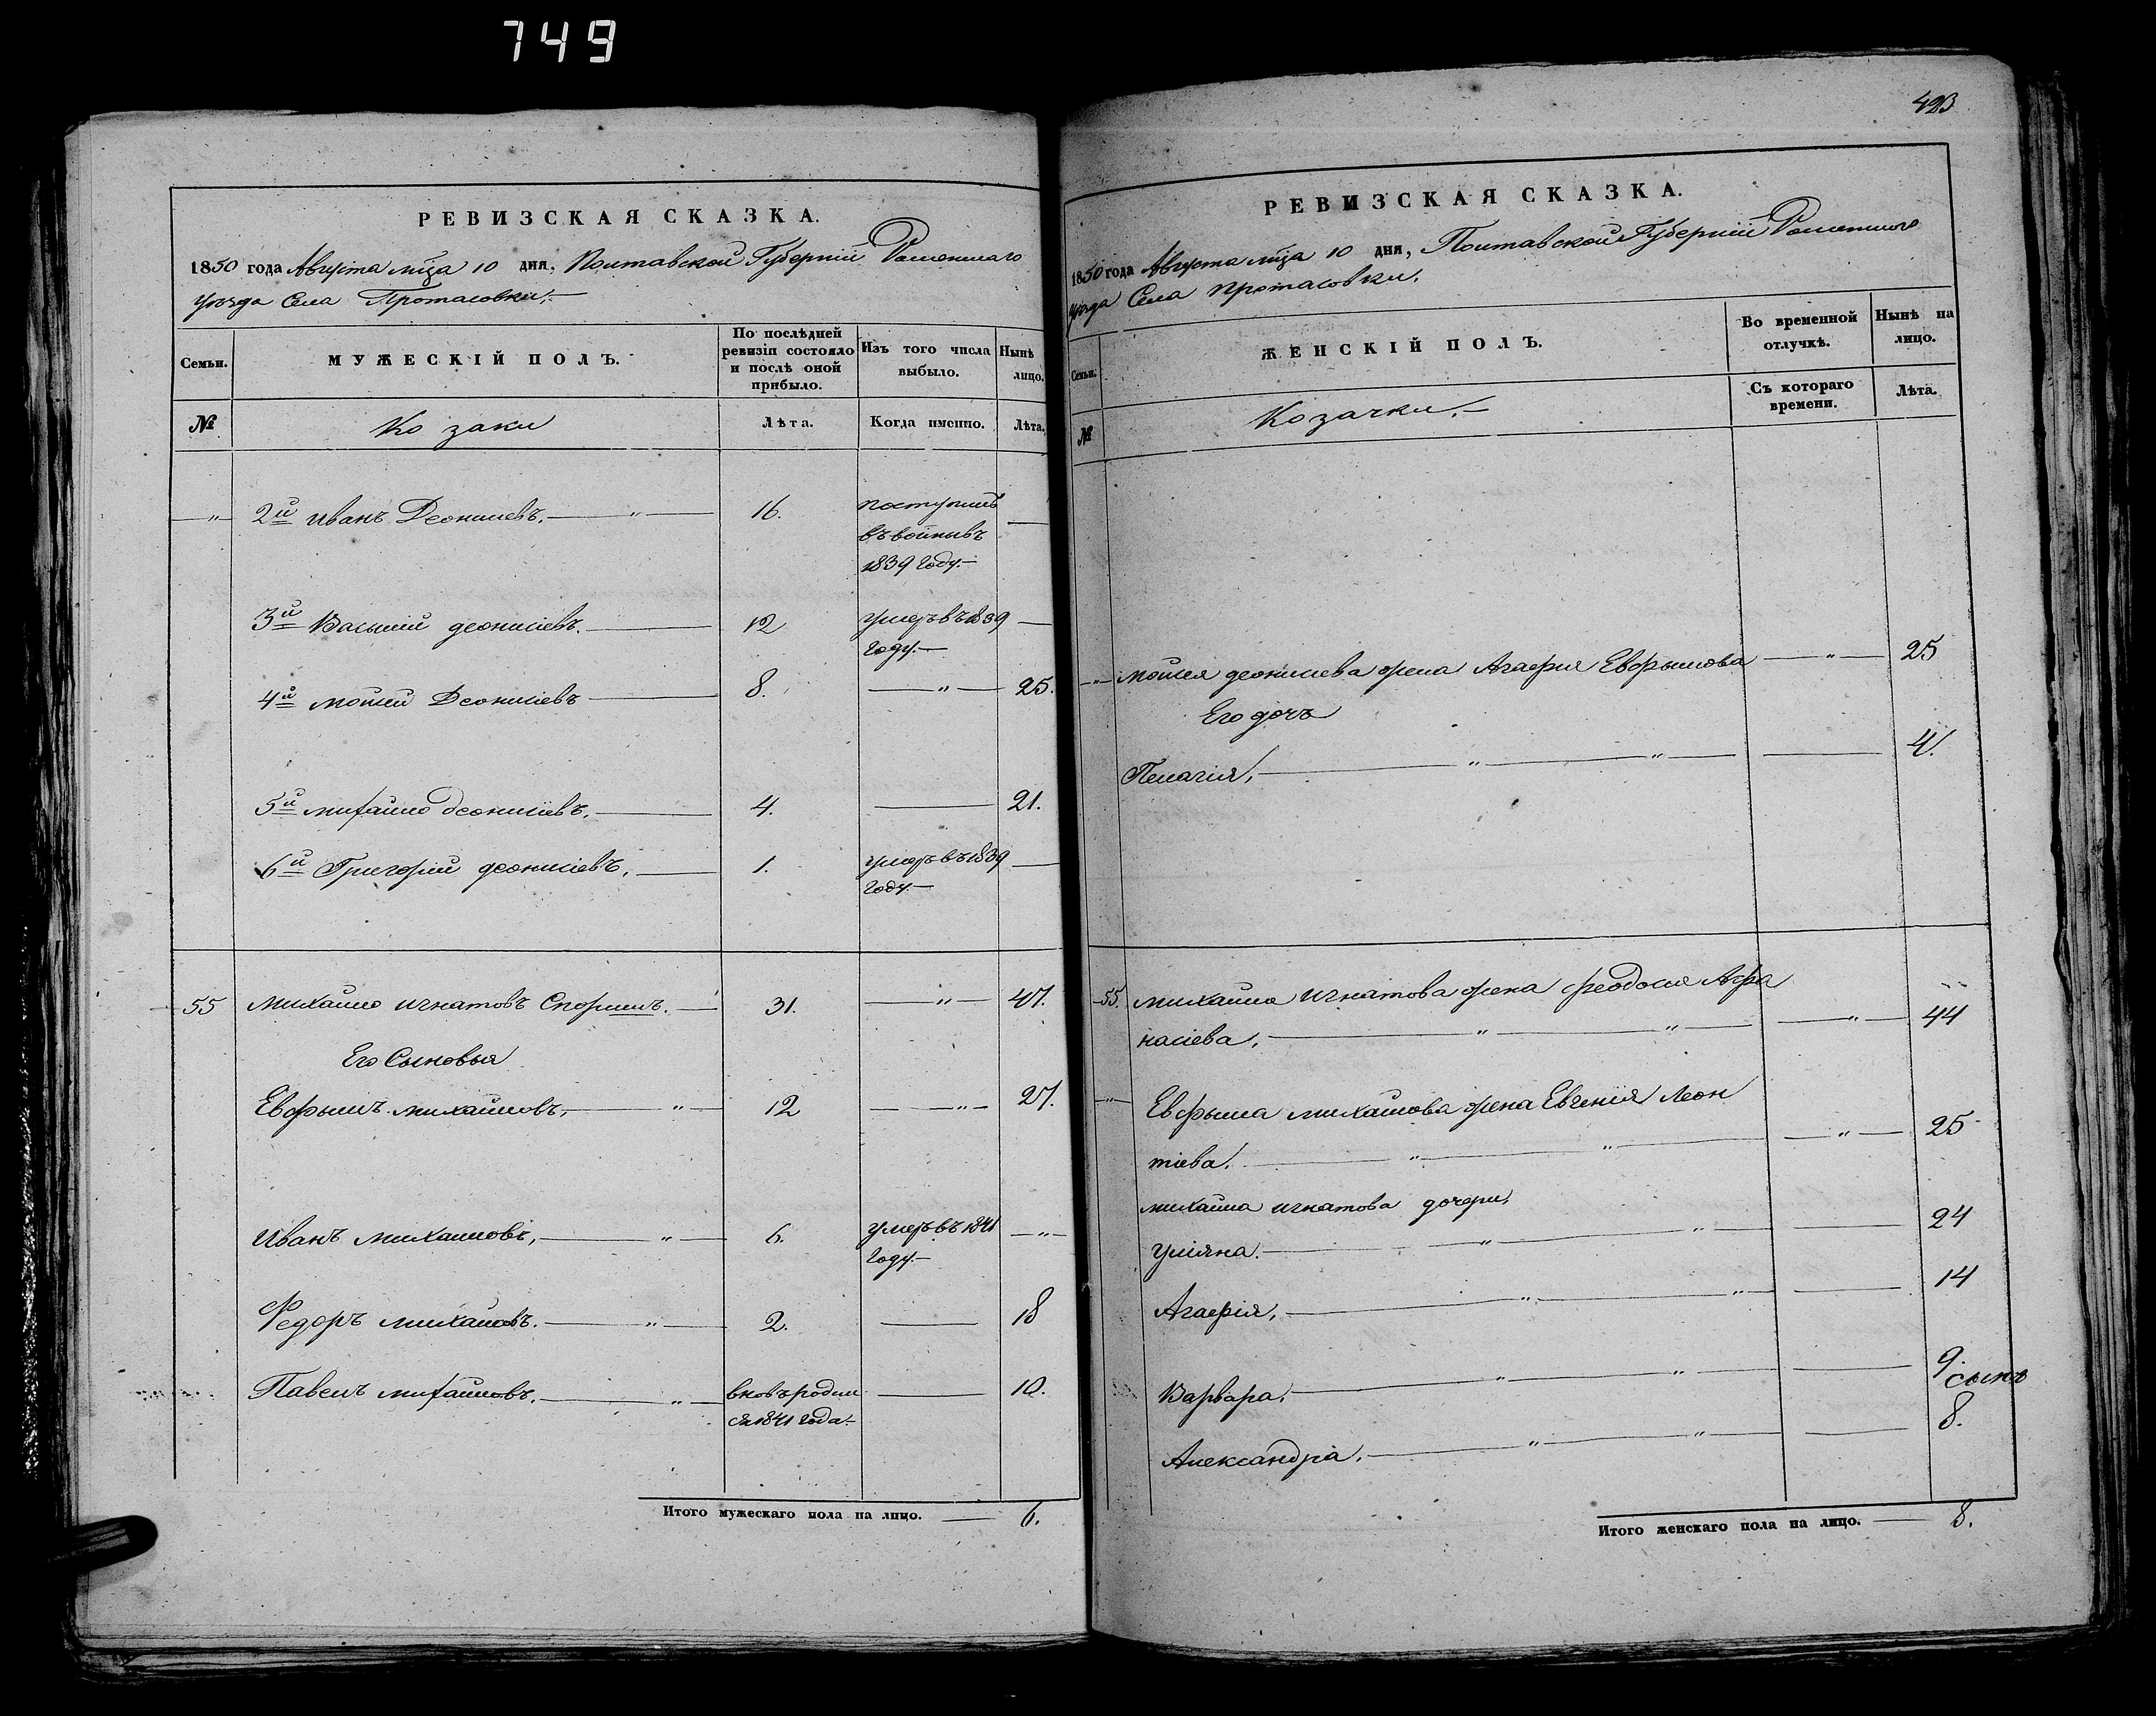 749
РЕВИЗСКАЯ СКАЗКА.
1850 года Августа мца 10 дня, Полтавской Губерніи Роменнаго
уезда Села Протасовки.
Семьи.
МУЖЕСКІЙ ПОЛЪ.
По послѣдней ревизіи состояло и послѣ оной прибыло.
Изъ того числа выбыло.
Нынѣ лицо.
№
Козаки
Лѣта.
Когда именно.
Лѣта.
2й Иванъ Деонисіевъ. 16. поступилъ
въ
1839 году.
3й Василій деонисіевъ. 12 умеръ въ 1839
году.
4й Мойсей Деонисіевъ 8. 25.
5й Михайло Деонисіевъ. 4. 21.
6й Григорій деонисіевъ. 1. умеръ въ 1839
году.
55 Михайло Игнатовъ 31. 47.
Его Сыновья
Евфимъ Михайловъ, 12 27.
Иванъ Михайловъ, 6. умеръ въ 1841
году.
Федоръ Михайловъ. 2. 18
Павелъ Михайловъ. вновь родил 10.
ся 1841 года.
Итого мужескаго пола на лицо. 6.
423
РЕВИЗСКАЯ СКАЗКА.
1850 года Августа мца 10 дня, Полтавской Губерніи Роменнаго
уезда Села Протасовки.
Семьи.
ЖЕНСКІЙ ПОЛЪ.
Во временной отлучкѣ.
Нынѣ на лицо.
№
Козачки.
Съ котораго времени.
Лѣта.
Мойсея деонисіева жена Агафія Евфимова 25
Его дочь
Пелагія, 4.
55. Михайла Игнатова жена Феодосія Афа
насіева. 44
Евфима Михайлова жена Евгенія Леон
тіева. 25
Михайла Игнатова дочери,
Уліяна. 24
Агафія, 14
Варвара, 9.
Александра. 8.
Итого женскаго пола на лицо. 8.